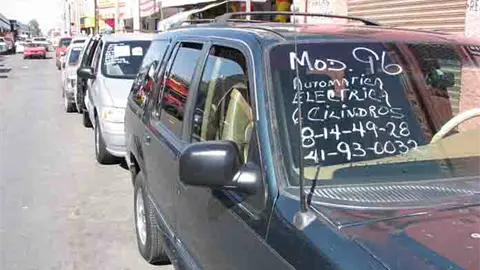 MOD. 96
AUTOMATICA
ELECTRICA
6 CILINDROS
8-14-49-28
41-93-0032